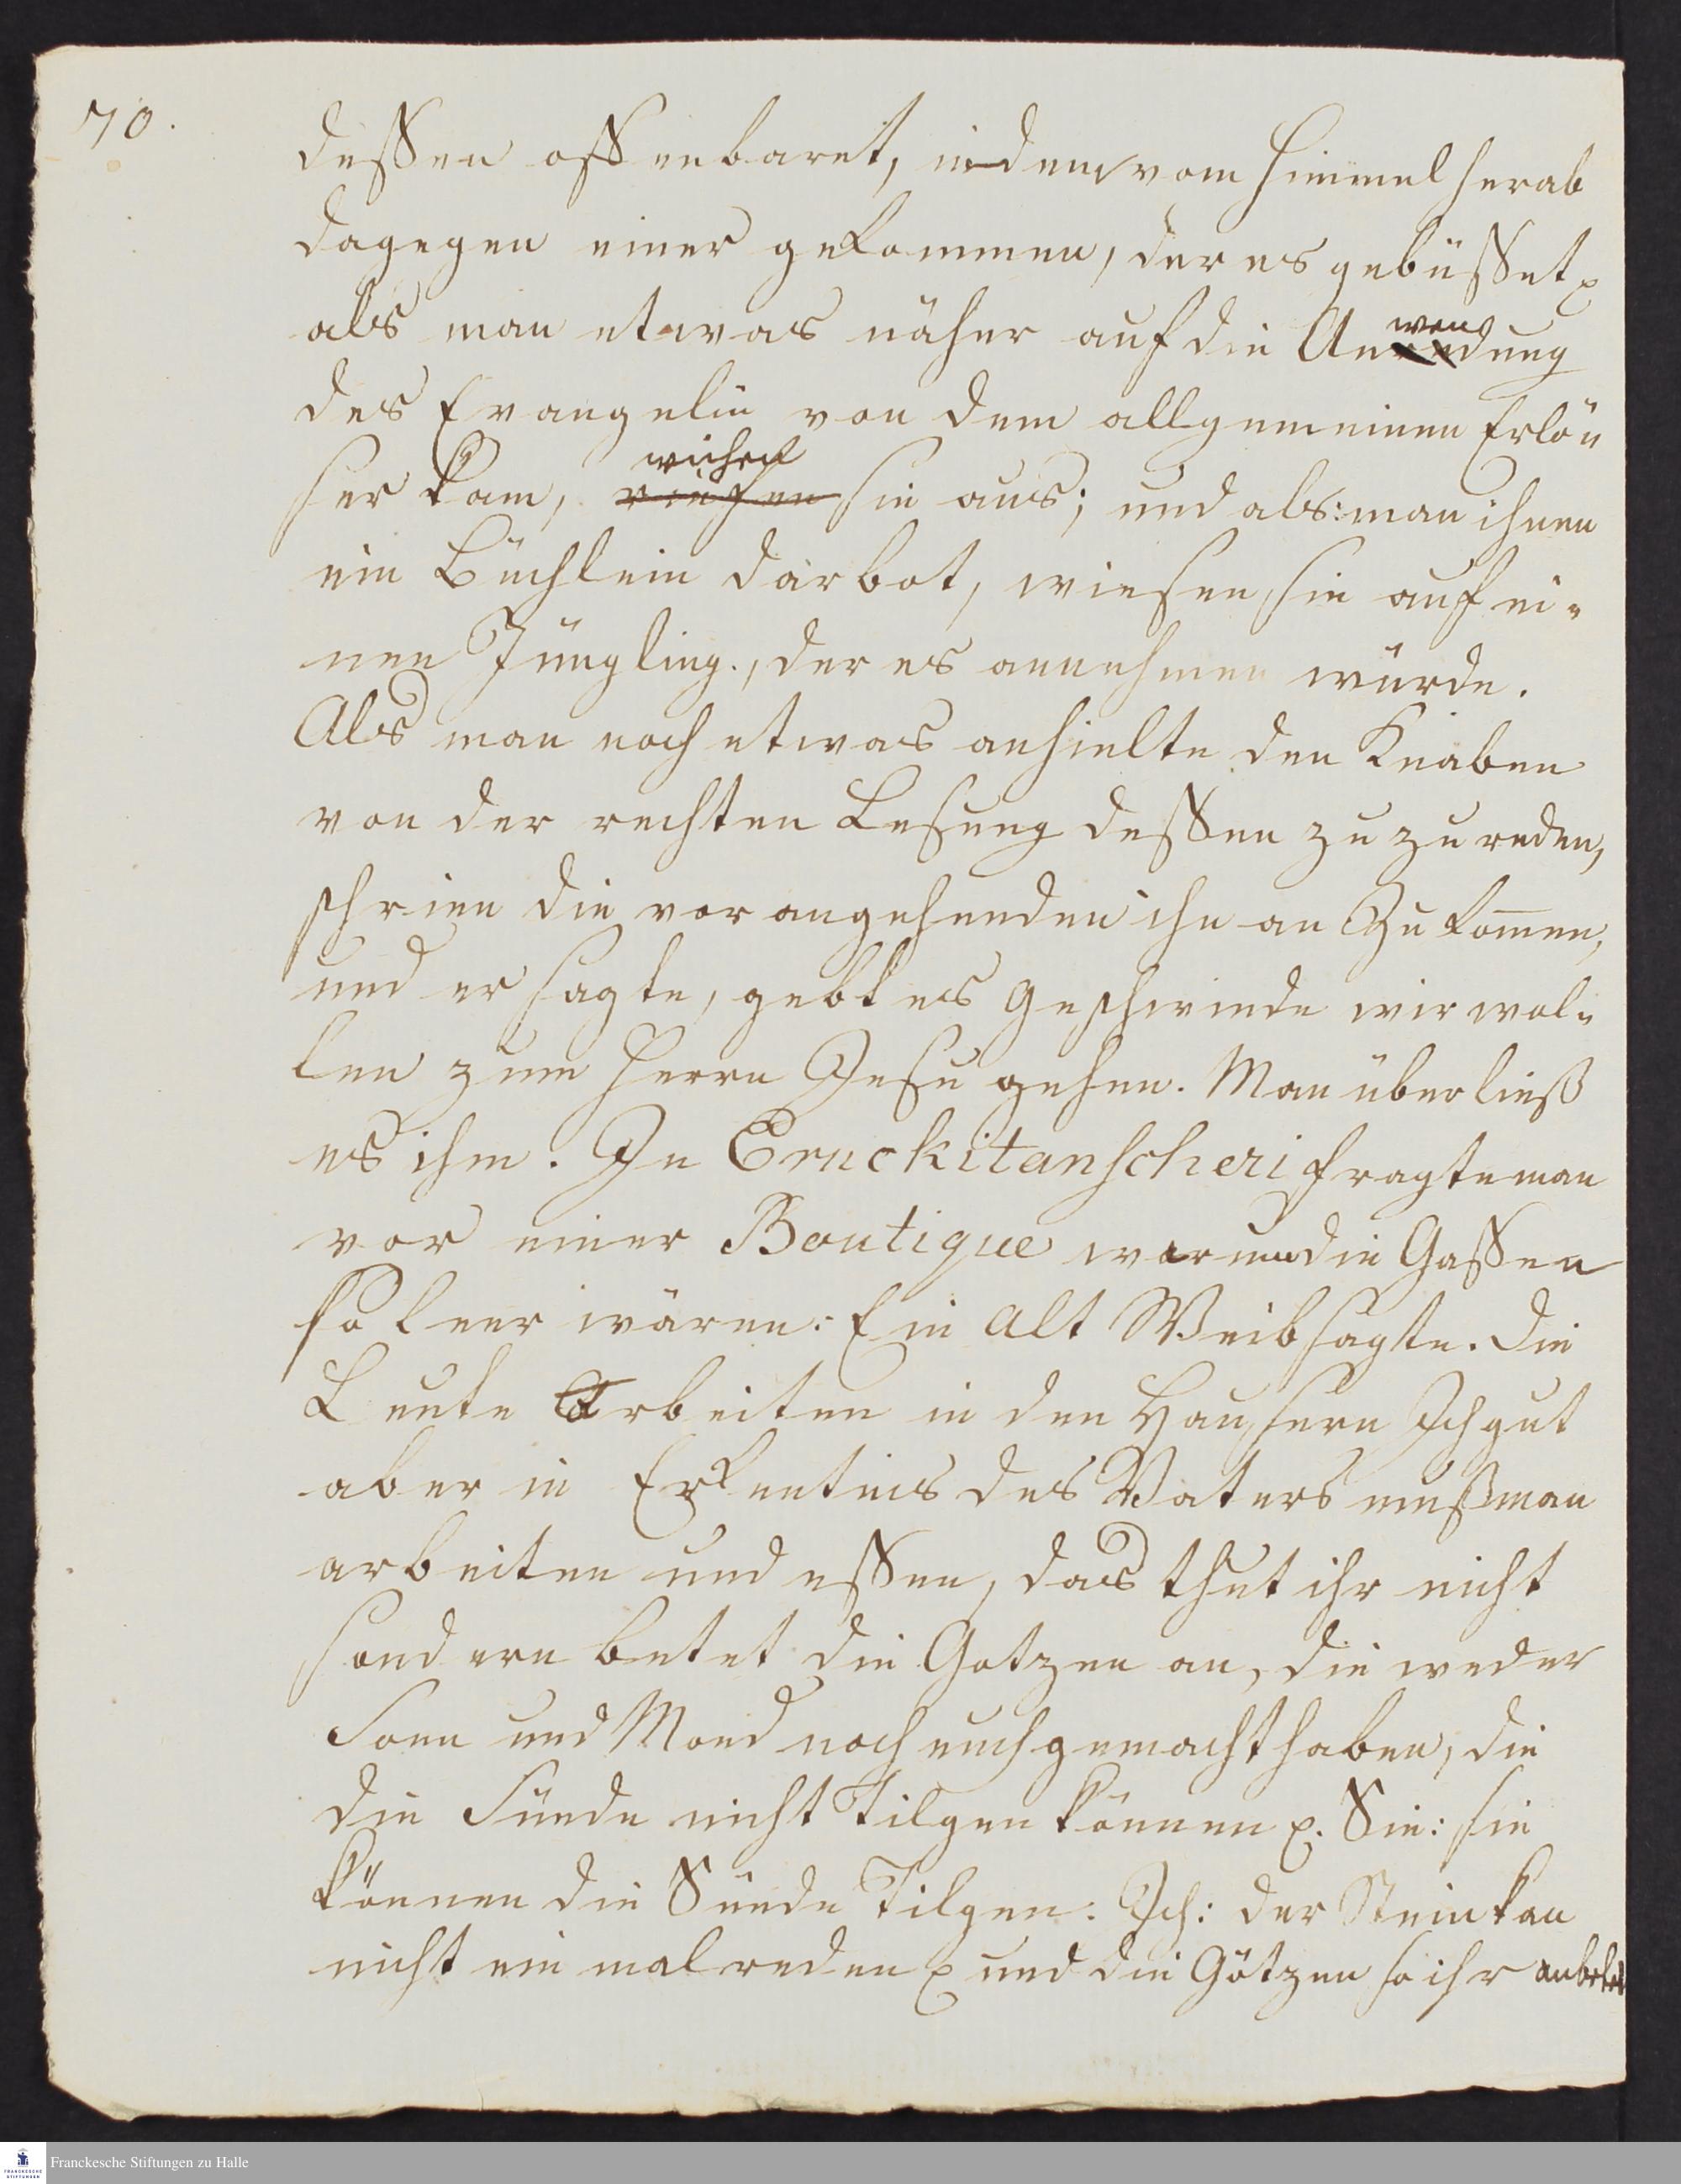 70.
deßen offenbaret, indem vom Himmel herab
dagegen einer gekommen, der es gebüßet ꝛc
als man etwas näher auf die Anwendung
des Evangelii von dem allgemeinen Erlö„
ser kam, wichen sie aus; und als man ihnen
ein Büchlein darbot, wiesen sie auf ei„
nen Jüngling, der es annehmen würde.
Als man noch etwas anhielte den Knaben
von der rechten Lesung deßen zu zu reden,
schrien die vorangehenden ihn an Zu kom̄en,
und er sagte, gebt es geschwinde wir wol„
len zum Herrn Jesu gehen. Man überließ
es ihm. In Eruckitanscheri fragte man
vor einer Boutique warum die Gaßen
so leer wären: Ein alt Weib sagte. Die
Leute Arbeiten in den Hausern Ich gut
aber in Erkentnis des Vaters muß man
arbeiten und eßen, das thut ihr nicht
sondern betet die Gotzen an, die weder
Sonn und Mond noch euch gemacht haben, die
die Sünde nicht Tilgen können ꝛc. Sie: sie
können die Sünde Tilgen: Ich: der Stein kan
nicht ein mal reden ꝛc und die Götzen so ihr anbetet
Franckesche Stiftungen zu Halle
FRANCKESCHE
STIFTUNGEN